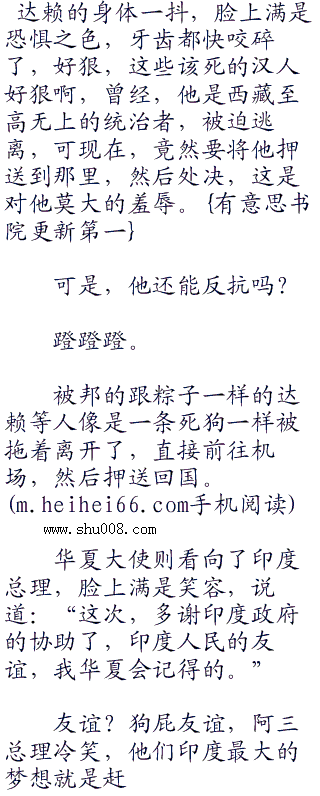 达赖的身体一抖，脸上满是
恐惧之色，牙齿都快咬碎
了，好狠，这些该死的汉人
好狠啊，曾经，他是西藏至
高无上的统治者，被迫逃
离，可现在，竟然要将他押
送到那里，然后处决，这是
对他莫大的羞辱。{有意思书
院更新第一}
可是，他还能反抗吗？
蹬蹬蹬。
被邦的跟粽子一样的达
赖等人像是一条死狗一样被
拖着离开了，直接前往机
场，然后押送回国。
(m.heihei66.com手机阅读)
www.shu008.com
华夏大使则看向了印度
总理，脸上满是笑容，说
道：“这次，多谢印度政府
的协助了，印度人民的友
谊，我华夏会记得的。”
友谊？狗屁友谊，阿三
总理冷笑，他们印度最大的
梦想就是赶